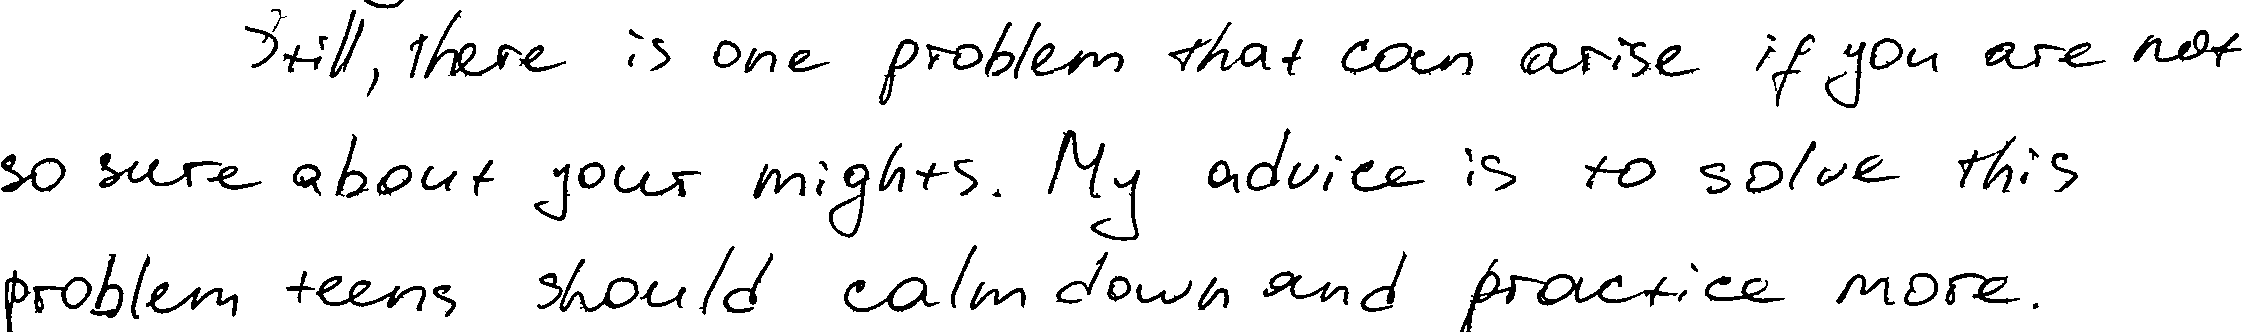 Still, there is one problem that can arise if you are not
so sure about your mights. My advice is to solve this
problem teens should calm down and practice more.